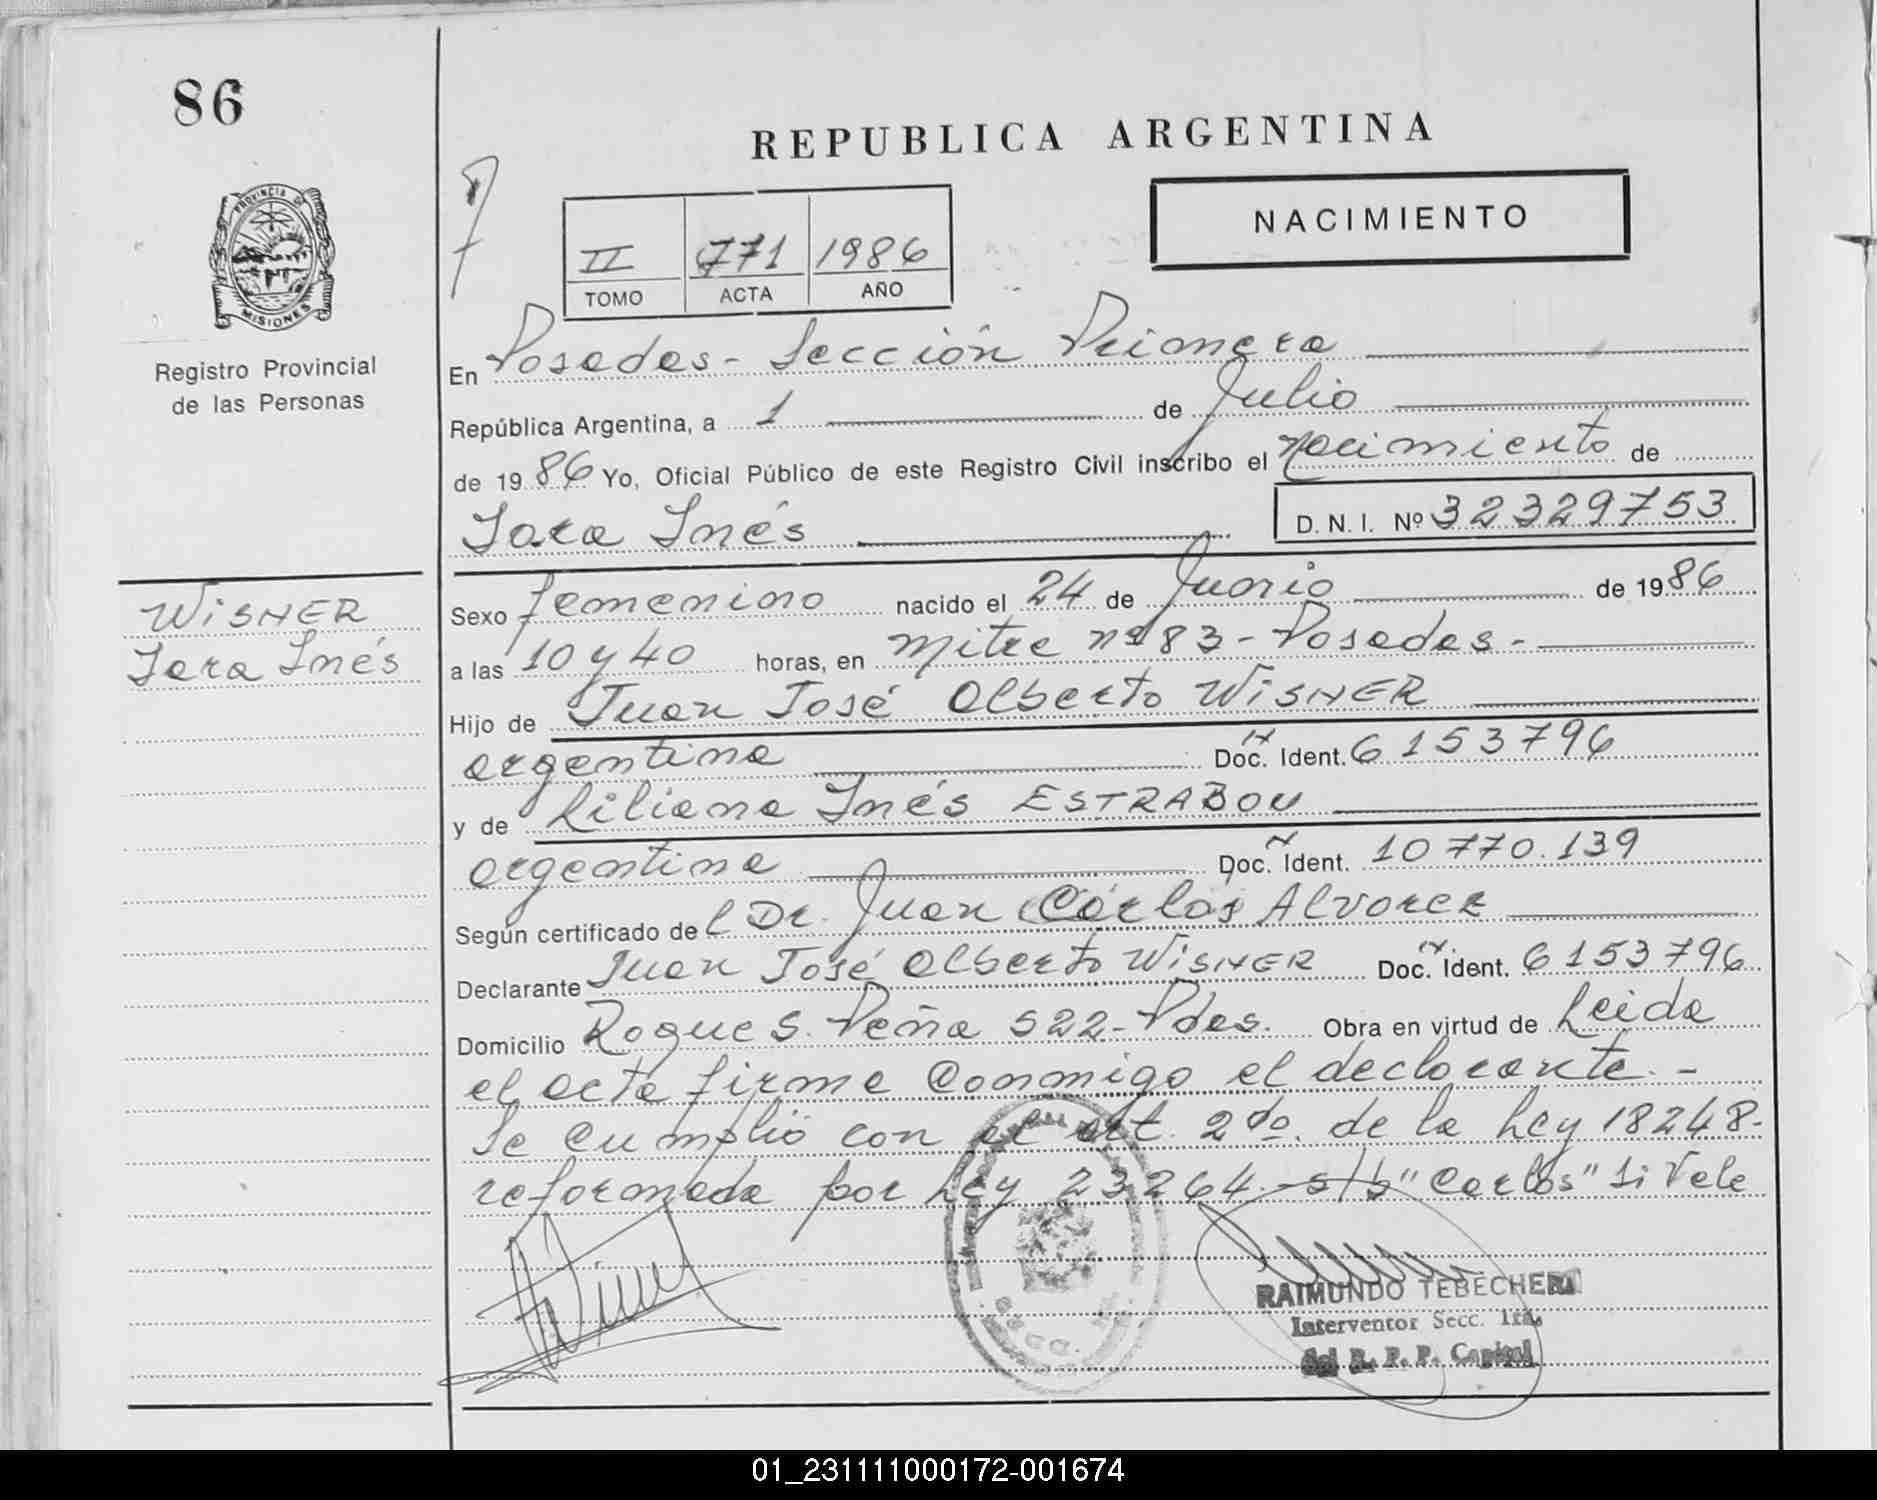 86
REPUBLICA ARGENTINA
NACIMIENTO
II 771 1986
TOMO ACTA AÑO
PROVINCIA DE
MISIONES
Registro Provincial
de las Personas
En Posadas - Sección Primera
República Argentina, a 1 de Julio
de 1986 Yo, Oficial Público de este Registro Civil inscribo el nacimiento de
Sara Inés D.N.I. Nº 32329753
WiSNER
Sara Inés
Sexo femenino nacido el 24 de Junio de 1986
a las 10 y 40 horas, en Mitre nº 83 - Posadas -
Hijo de Juan José Alberto WiSNER
argentina Doc. Ident. 6153796
y de Liliana Inés ESTRABOU
argentina Doc. Ident. 10770.139
Según certificado del Dr. Juan Carlos Alvarez
Declarante Juan José Alberto WiSNER Doc. Ident. 6153796
Domicilio Roque S. Peña 522 - Pdas. Obra en virtud de Leida
el acta firma conmigo el declarante. -
Se cumplió con el art. 2do. de la Ley 18248 -
reformada por Ley 23264 - s/b "Carlos" Si Vale
RAIMUNDO TEBECHERI
Interventor Secc. 1ra.
del R. P. P. Capital
01_231111000172-001674